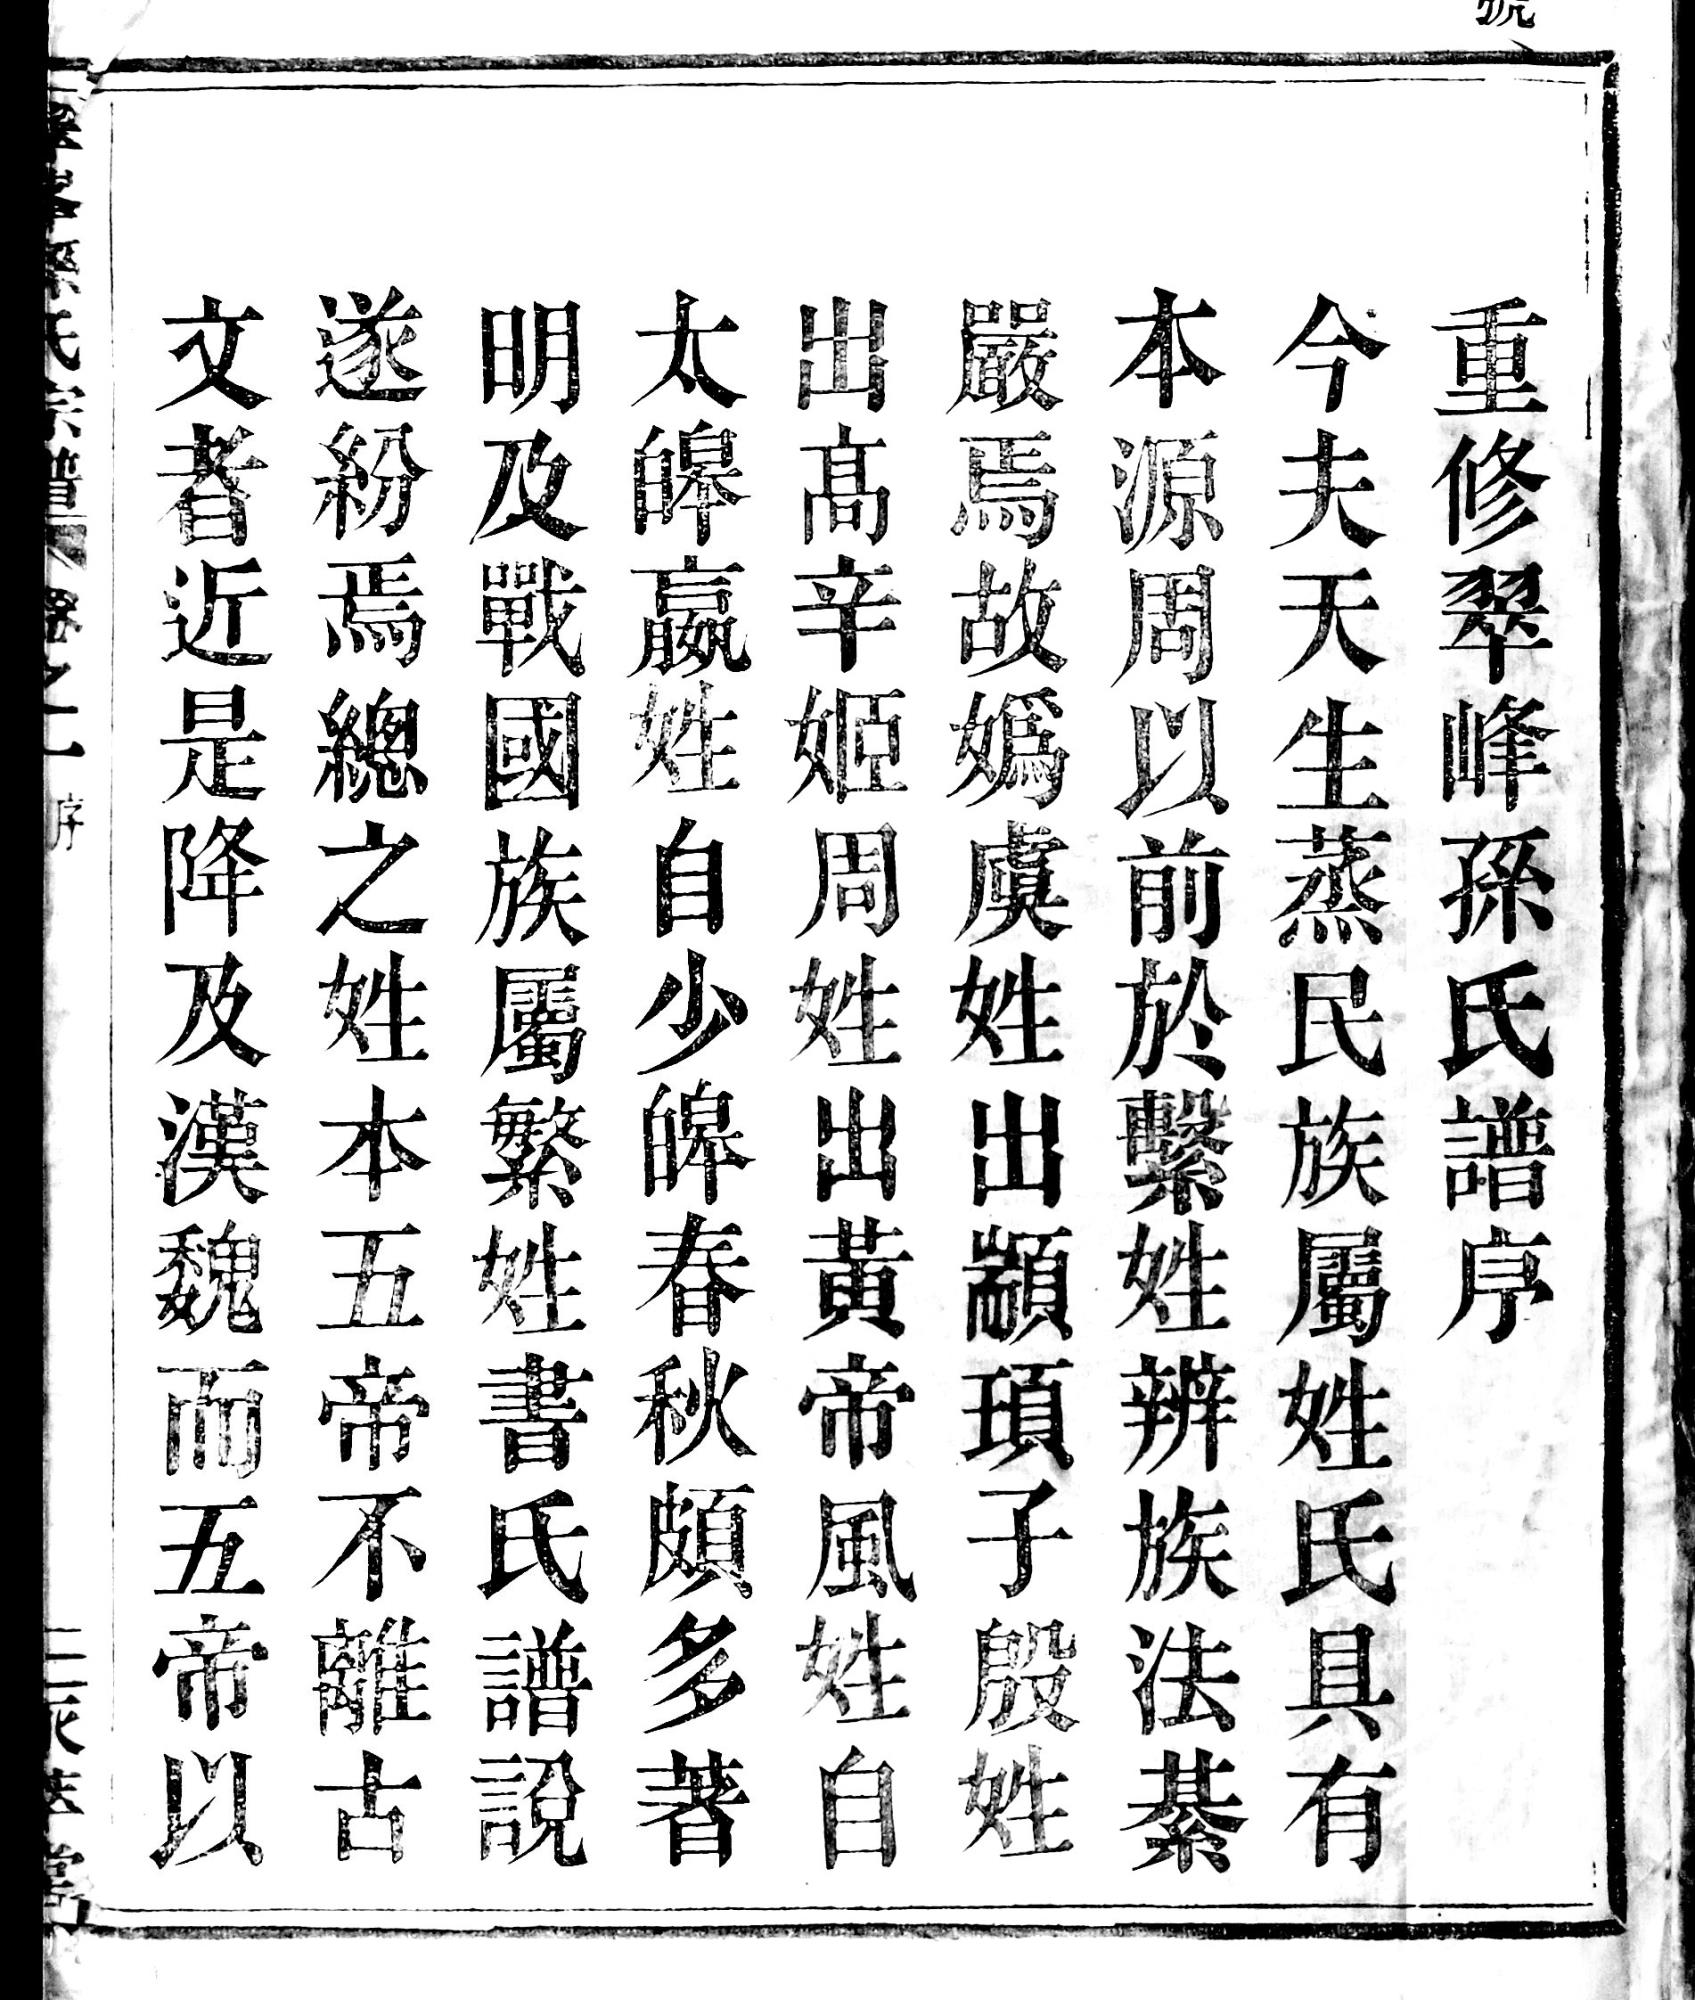 號
重修翠峰孫氏譜序
今夫天生蒸民族屬姓氏具有
本源周以前於繫姓辨族法綦
嚴焉故嬀虞姓出顓頊子殷姓
出高辛姬周姓出黃帝風姓自
太皞嬴姓自少皞春秋頗多著
明及戰國族屬繁姓書氏譜說
遂紛焉總之姓本五帝不離古
文者近是降及漢魏而五帝以
氏宗譜 卷之一 序